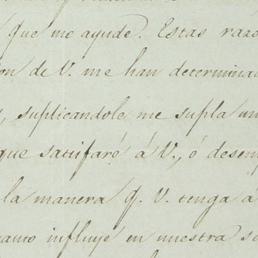 que me ayude. Estas razo
on de V. me han determinad
, suplicandole me supla un
que satisfaré á V., ó desem
la manera q. V. tenga á
influye en nuestra s